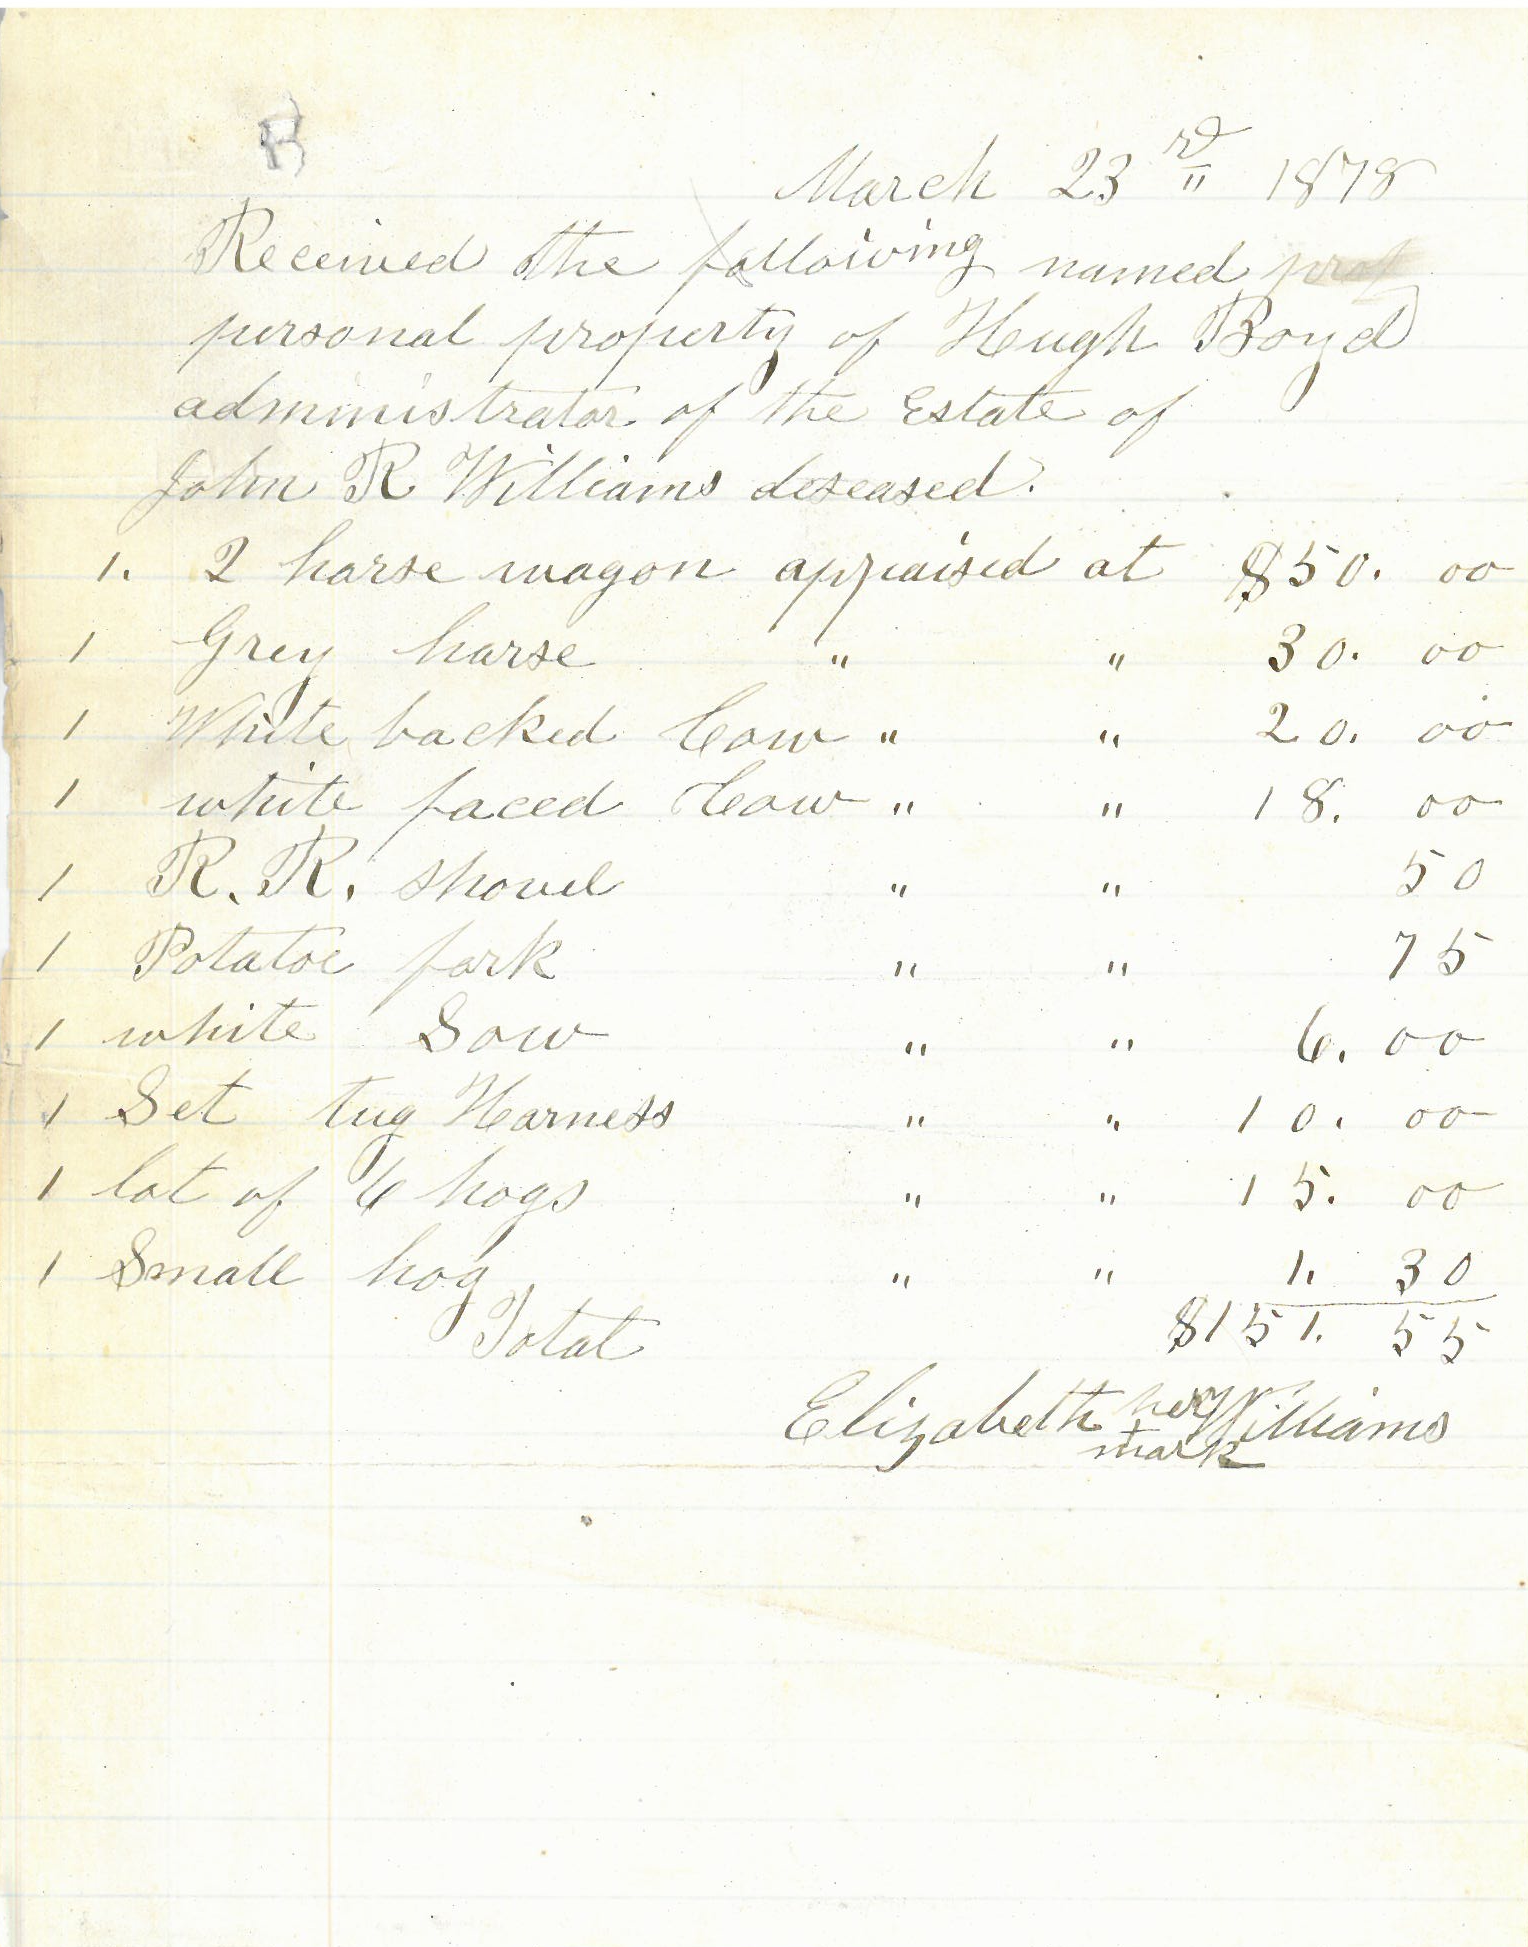 B
March 23rd 1878
Received the following named prop
personal property of Hugh Boyd
administrator of the Estate of
John R Williams deseased.
1. 2 horse wagon appraised at $50. 00
1 Grey horse " " 30. 00
1 White backed Cow " " 20. 00
1 white faced Cow " " 18. 00
1 R. R. shovel " " 50
1 Potatoe fork " " 75
1 white Sow " " 6. 00
1 Set tug Harness " " 10. 00
1 lot of 6 hogs " " 15. 00
1 Small hog " " 1. 30
Total $151. 55
Elizabeth her + mark Williams